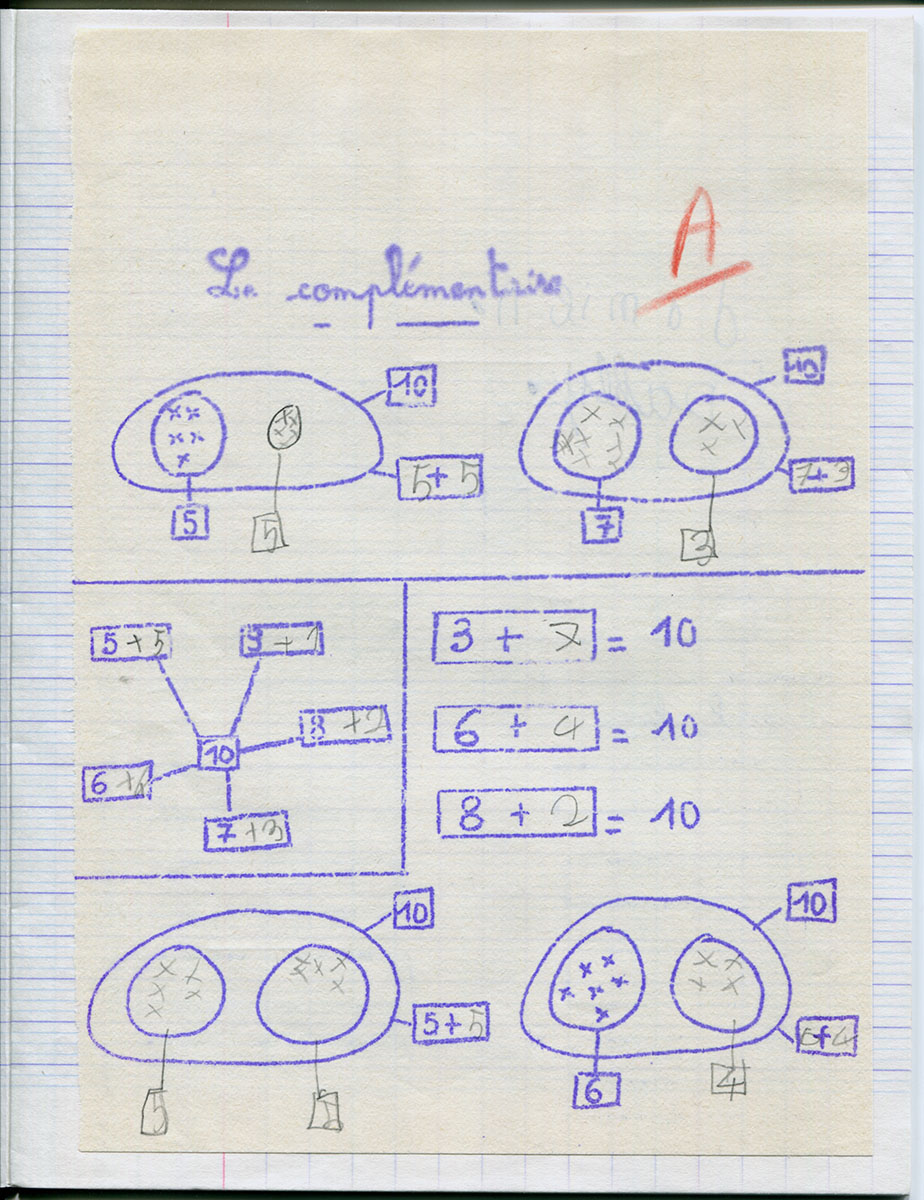 A
Le complémentaire
10
10
5 + 5
7 + 3
5
5
7
3
5 + 5
3 + 7
3 + 7 = 10
8 + 2
6 + 4 = 10
10
6 + 4
8 + 2 = 10
7 + 3
10
10
5 + 5
6 + 4
6
4
5